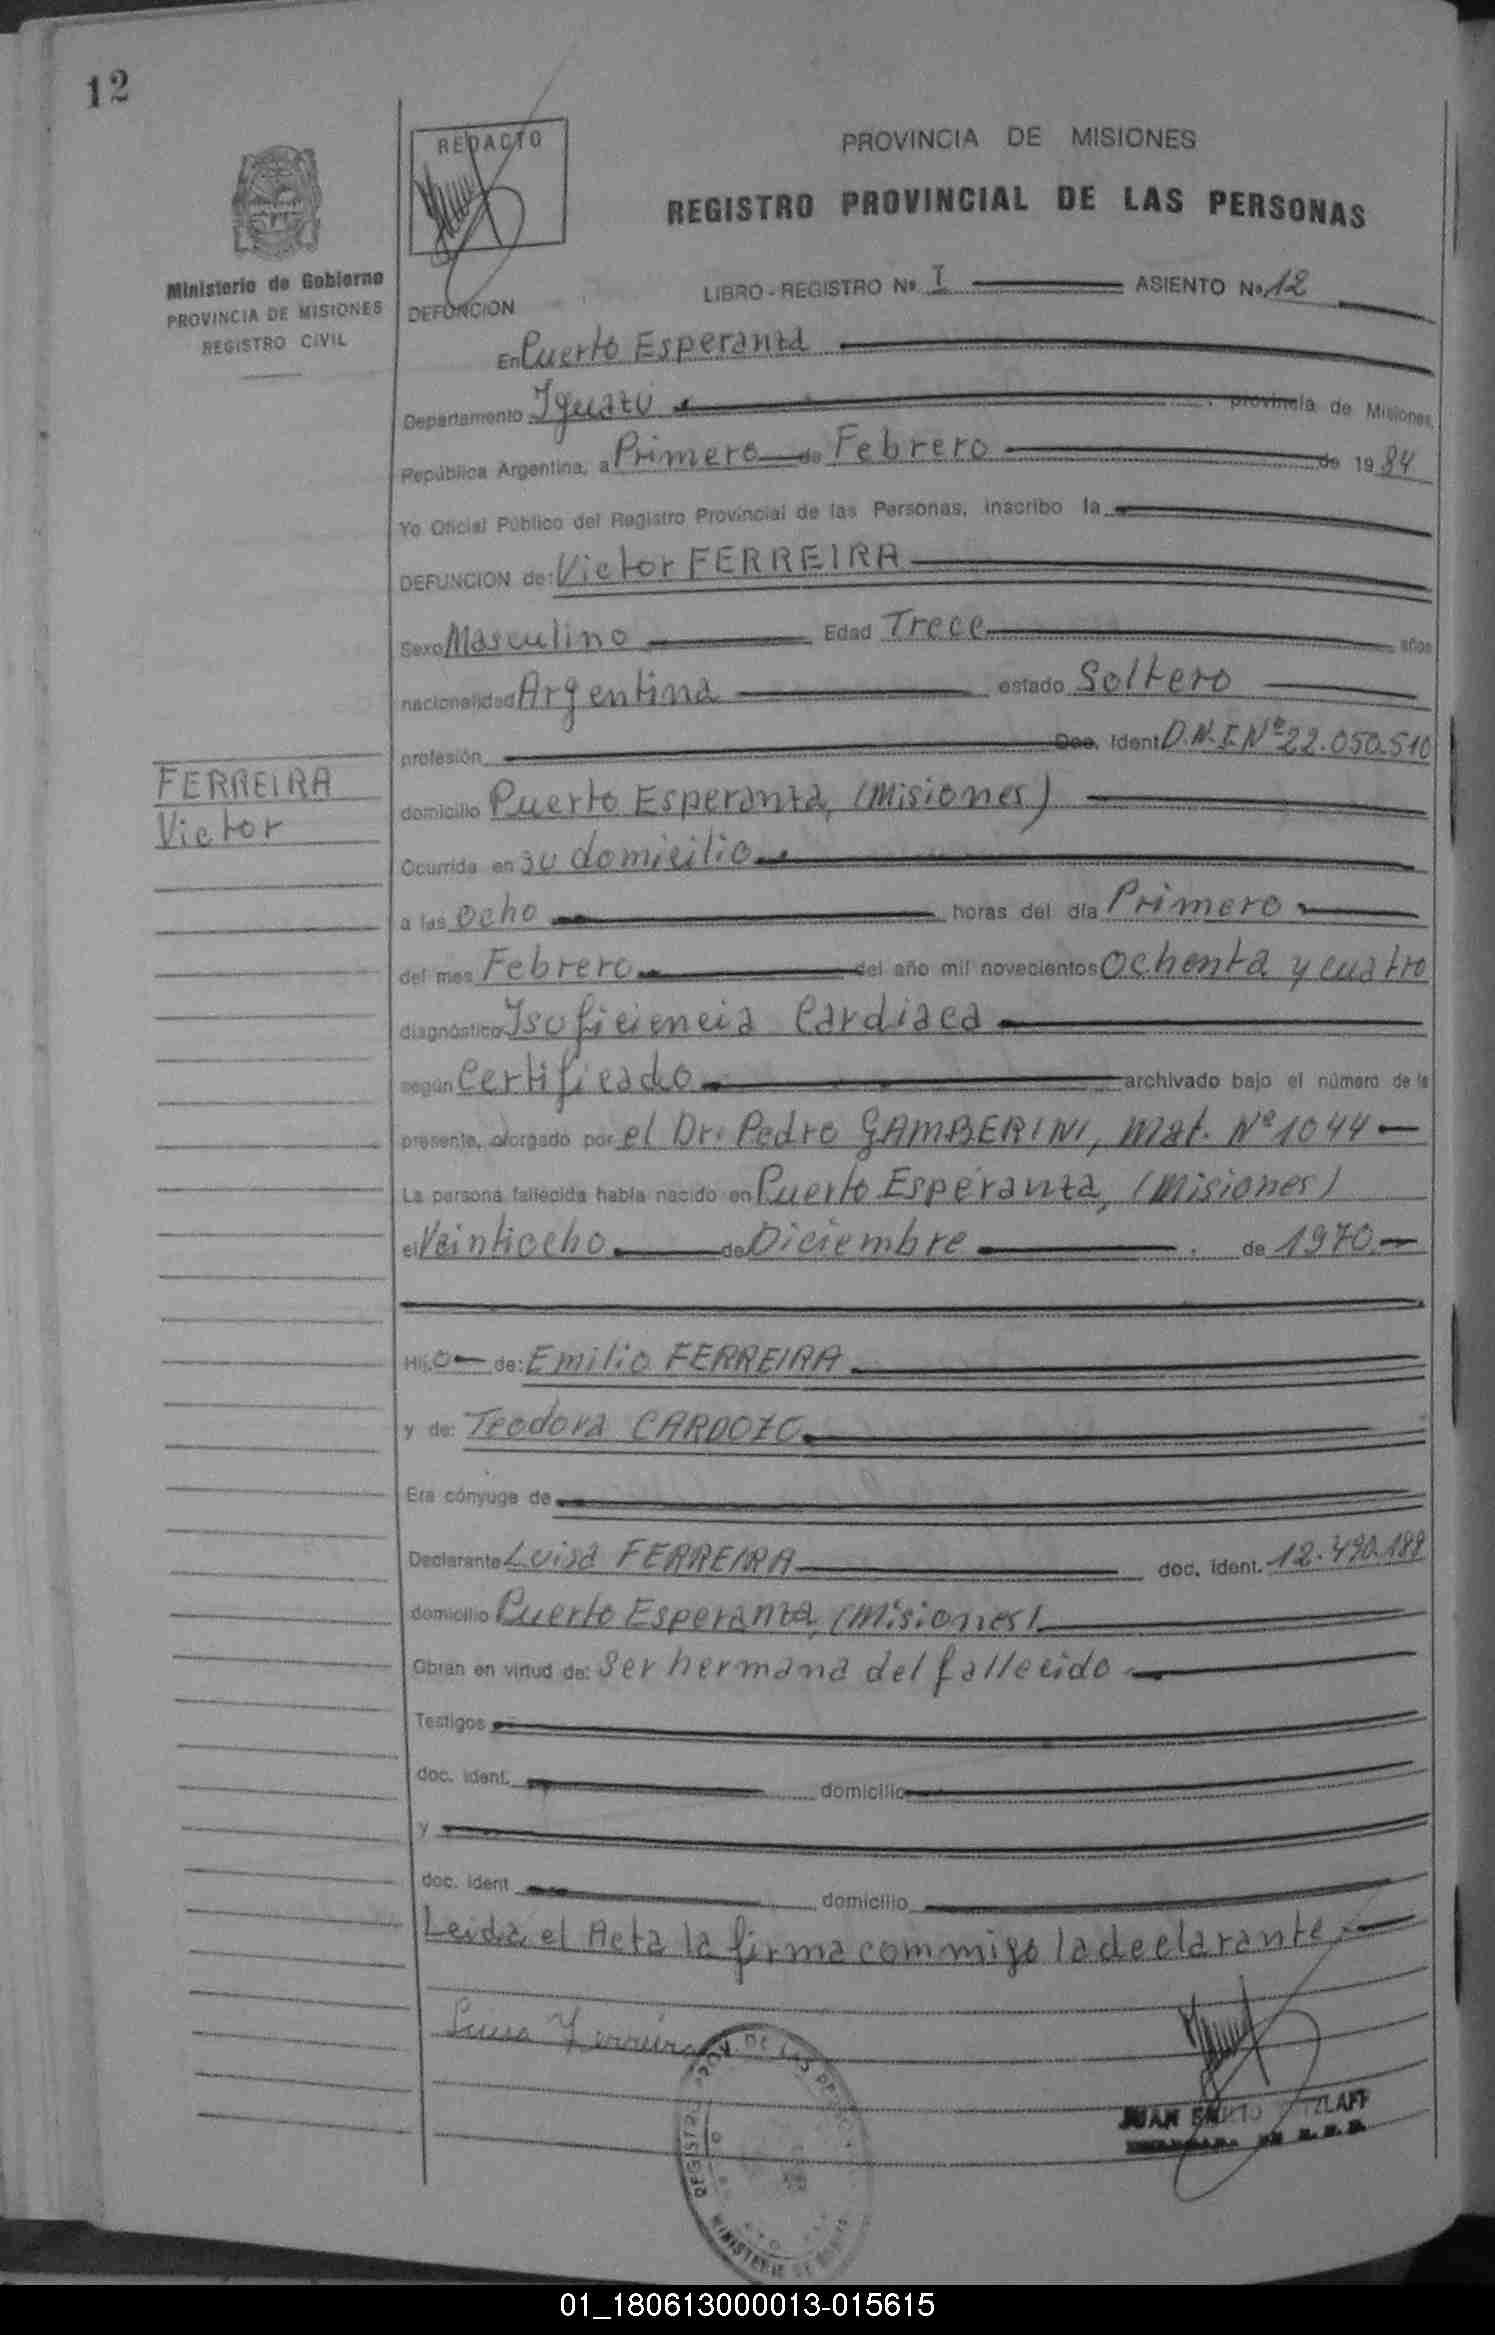 12
REDACTO
PROVINCIA DE MISIONES
REGISTRO PROVINCIAL DE LAS PERSONAS
Ministerio de Gobierno
PROVINCIA DE MISIONES
REGISTRO CIVIL
LIBRO - REGISTRO Nº I ASIENTO Nº 12
DEFUNCION
En Puerto Esperanza
Departamento Iguazú, provincia de Misiones,
República Argentina, a Primero de Febrero de 1984
Yo Oficial Público del Registro Provincial de las Personas, inscribo la
DEFUNCION de: Victor FERREIRA
Sexo Masculino Edad Trece años
nacionalidad Argentina estado Soltero
profesión Doc. Ident D.N.I. Nº 22.050.510
FERREIRA
Victor
domicilio Puerto Esperanza, (Misiones)
Ocurrida en su domicilio
a las ocho horas del día Primero
del mes Febrero del año mil novecientos ochenta y cuatro
diagnóstico Isuficiencia Cardiaca
según Certificado archivado bajo el número de la
presente, otorgado por el Dr. Pedro GAMBERINI, Mat. Nº 1044
La persona fallecida había nacido en Puerto Esperanza, (Misiones)
el Veintiocho de Diciembre de 1970.
Hij o de: Emilio FERREIRA
y de: Teodora CARDOZO
Era cónyuge de
Declarante Luisa FERREIRA doc. ident. 12.490.189
domicilio Puerto Esperanza, (Misiones)
Obran en virtud de: Ser hermana del fallecido
Testigos
doc. ident. domicilio
y
doc. ident domicilio
Leida el Acta la firma commigo la declarante
Luisa Ferreira
REGISTRO PROV. DE LAS PERSONAS
MINISTERIO DE
JUAN
01_180613000013-015615